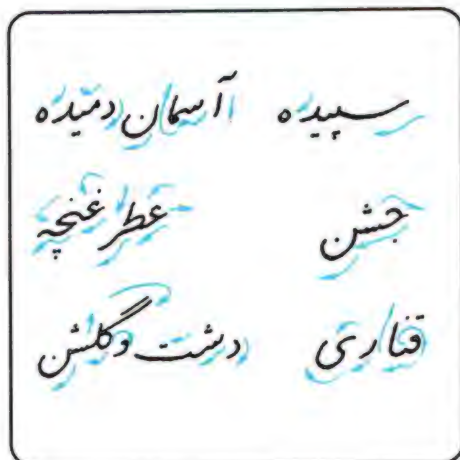 سپیده آسمان دمیده
جشن عطر غنچه
قناری دشت و گلشن